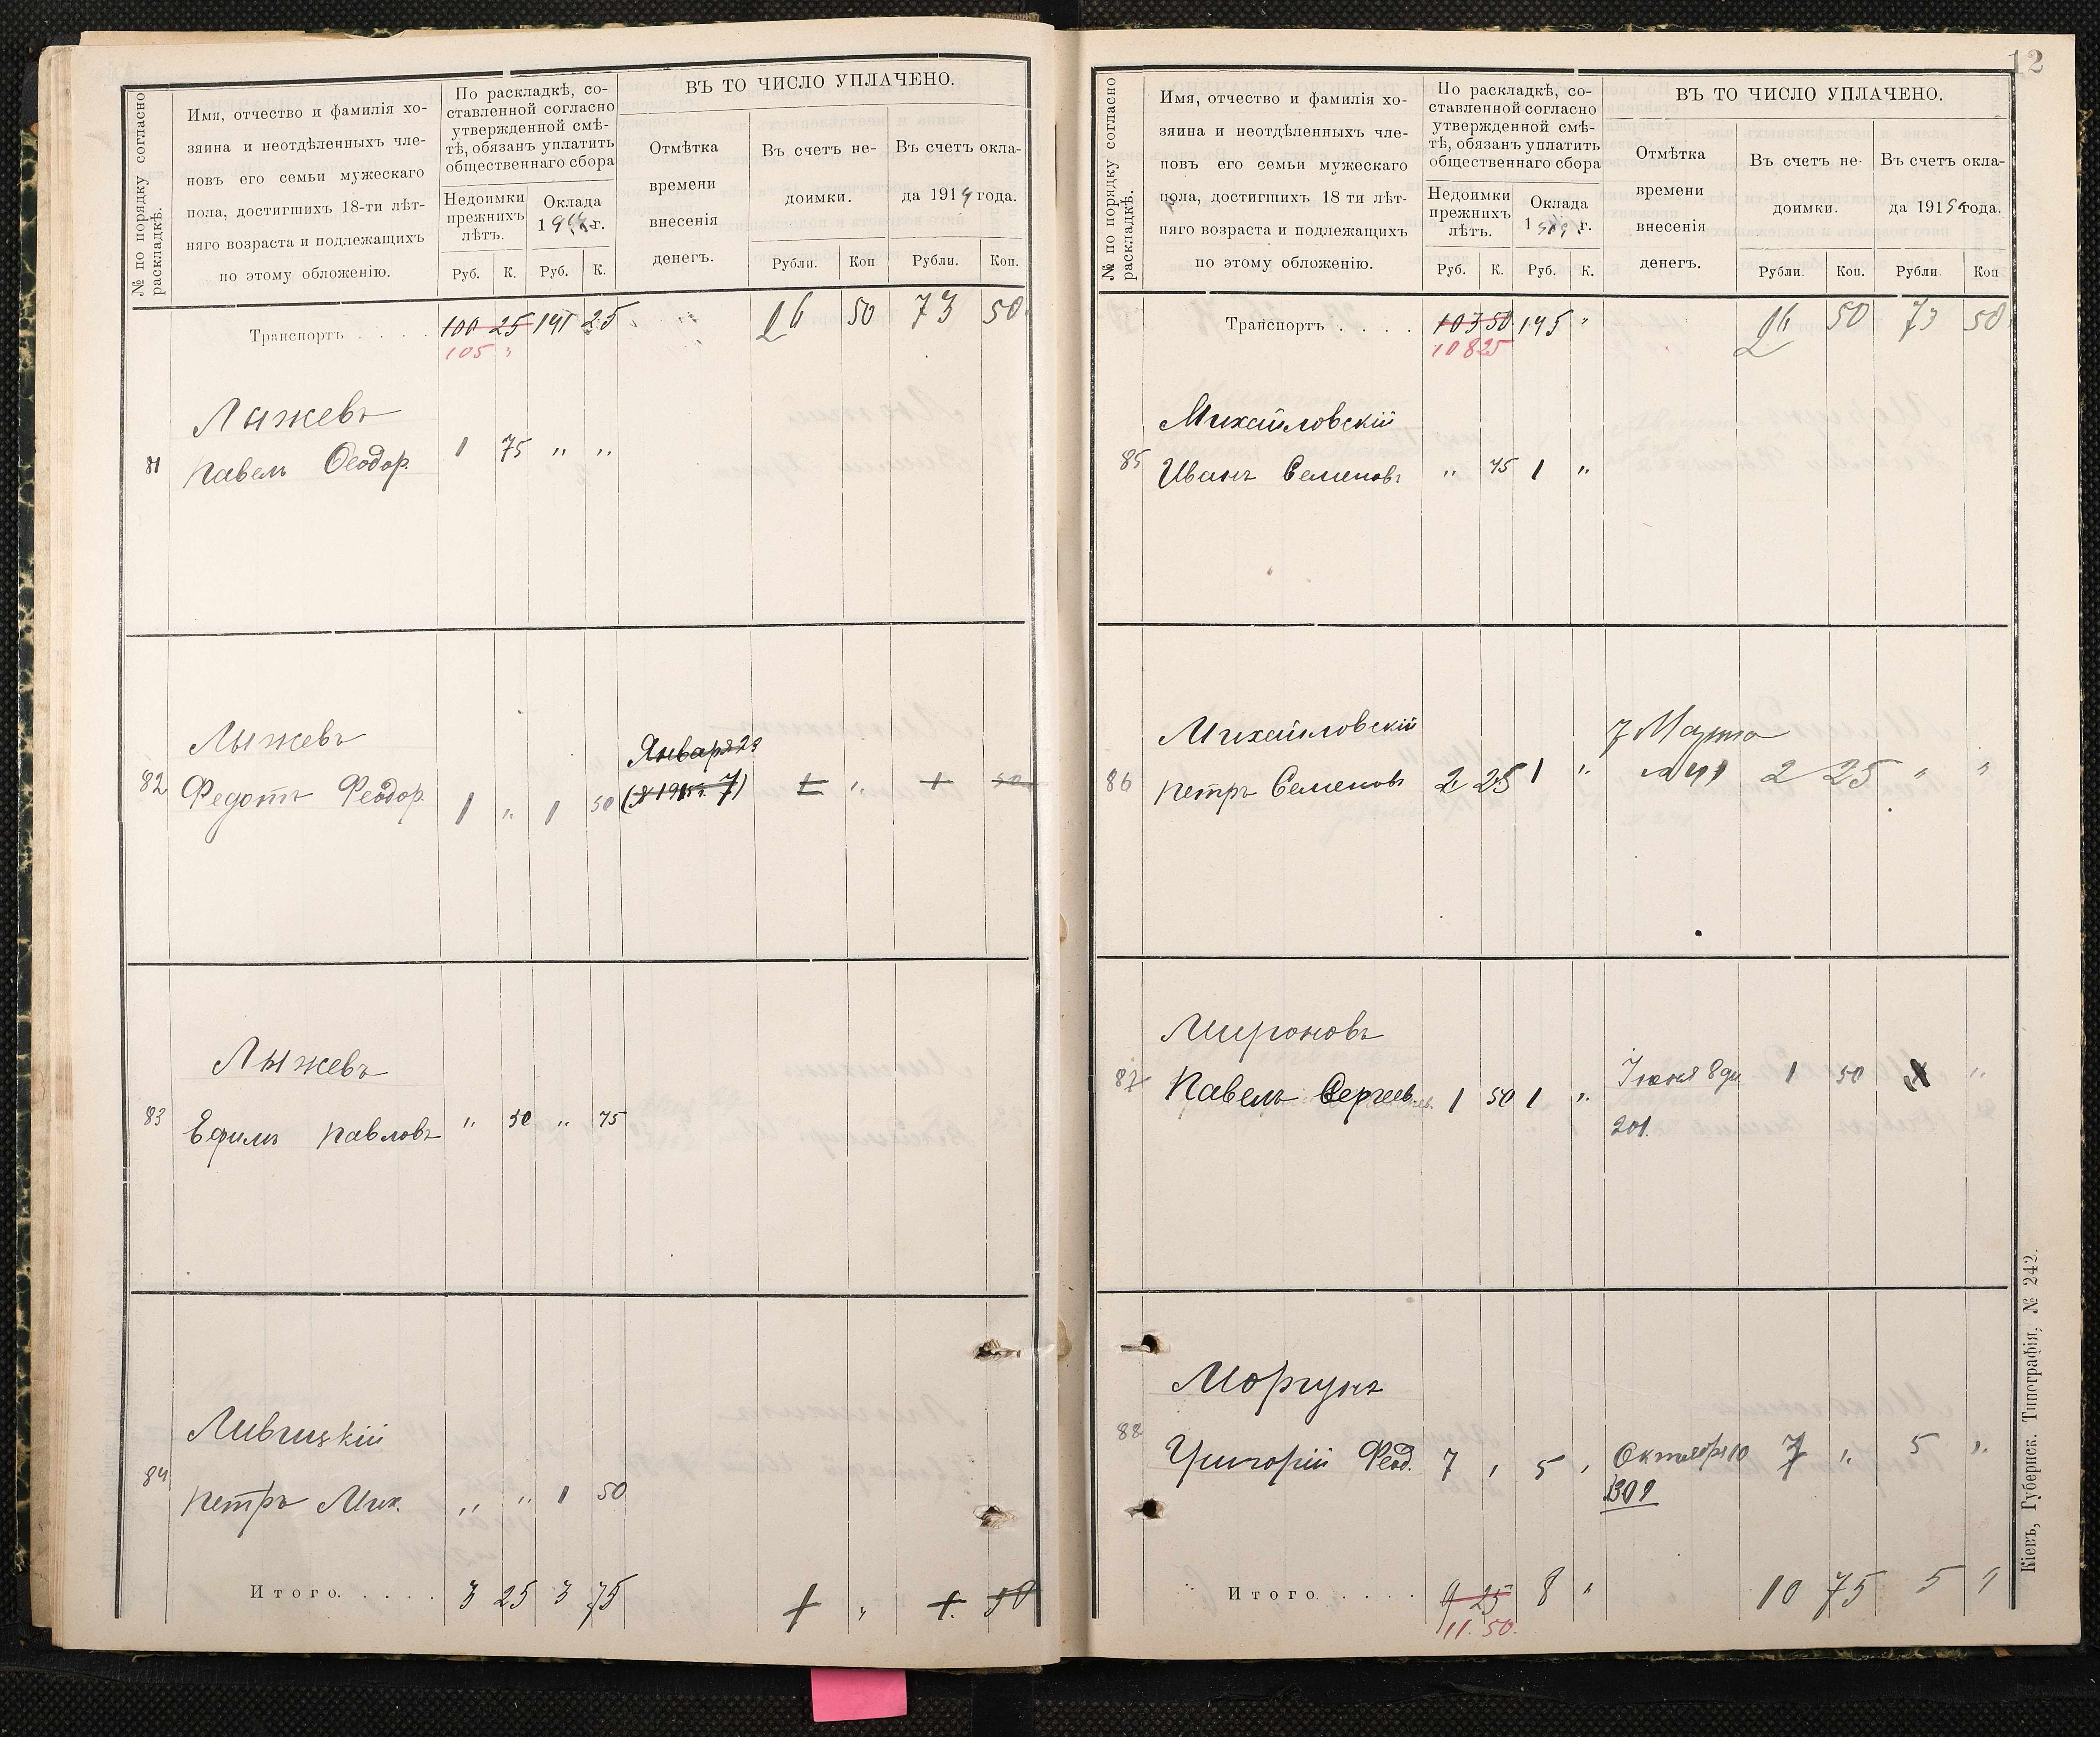 № по порядку согласно
раскладкѣ.
Имя, отчество и фамилія хо-
зяина и неотдѣленныхъ чле-
новъ его семьи мужескаго
пола, достигшихъ 18-ти лѣт-
няго возраста и подлежащихъ
по этому обложенію.
По раскладкѣ, со-
ставленной согласно
утвержденной смѣ-
тѣ, обязанъ уплатить
общественнаго сбора
Недоимки
прежнихъ
лѣтъ.
Оклада
Руб. К. Руб. К.
ВЪ ТО ЧИСЛО УПЛАЧЕНО.
Отмѣтка
времени
внесенія
денегъ.
Въ счетъ не-
доимки.
Въ счетъ окла-
да 1914 года.
Рубли. Коп Рубли. Коп.
Транспортъ . . . . 100 25 191 25 16 50 73 50
105 "
Лыжевъ
81 Павелъ Ѳеодор. 1 75 " "
Лыжевъ
82 Федотъ Феодор. 1 " 1 50
Января 23
1 " 1 50
Лыжевъ
83 Ефимъ Павловъ " 50 " 75
Ливицкій
84 Петръ Мих. " " 1 50
Итого. . . . . 3 25 3 75 1 " 1 50
12
№ по порядку согласно
раскладкѣ.
Имя, отчество и фамилія хо-
зяина и неотдѣленныхъ чле-
новъ его семьи мужескаго
пола, достигшихъ 18 ти лѣт-
няго возраста и подлежащихъ
по этому обложенію.
По раскладкѣ, со-
ставленной согласно
утвержденной смѣ-
тѣ, обязанъ уплатить
общественнаго сбора
Недоимки
прежнихъ
лѣтъ.
Оклада
Руб. К. Руб. К.
ВЪ ТО ЧИСЛО УПЛАЧЕНО.
Отмѣтка
времени
внесенія
денегъ.
Въ счетъ не-
доимки.
Въ счетъ окла-
да 191 года.
Рубли Коп. Рубли Коп
Транспортъ . . . . 103 50 195 " 16 50 73 50
108 25
Михайловскій
85 Иванъ Семеновъ " 75 1 "
Михайловскій
86 Петръ Семеновъ 2 25 1 "
7 Марта
2 25 " "
Мироновъ
87 Павелъ Сергеев. 1 50 1 "
Іюня 8 дн. 1 50 "
201.
Моргунъ
88 Григорій Феод. 7 " 5 "
Октября 10 7 " 5 "
309
Итого. . . . . 9 25 8 " 10 75 5 "
11. 50.
Кіевъ, Губернск. Типографія, № 242.